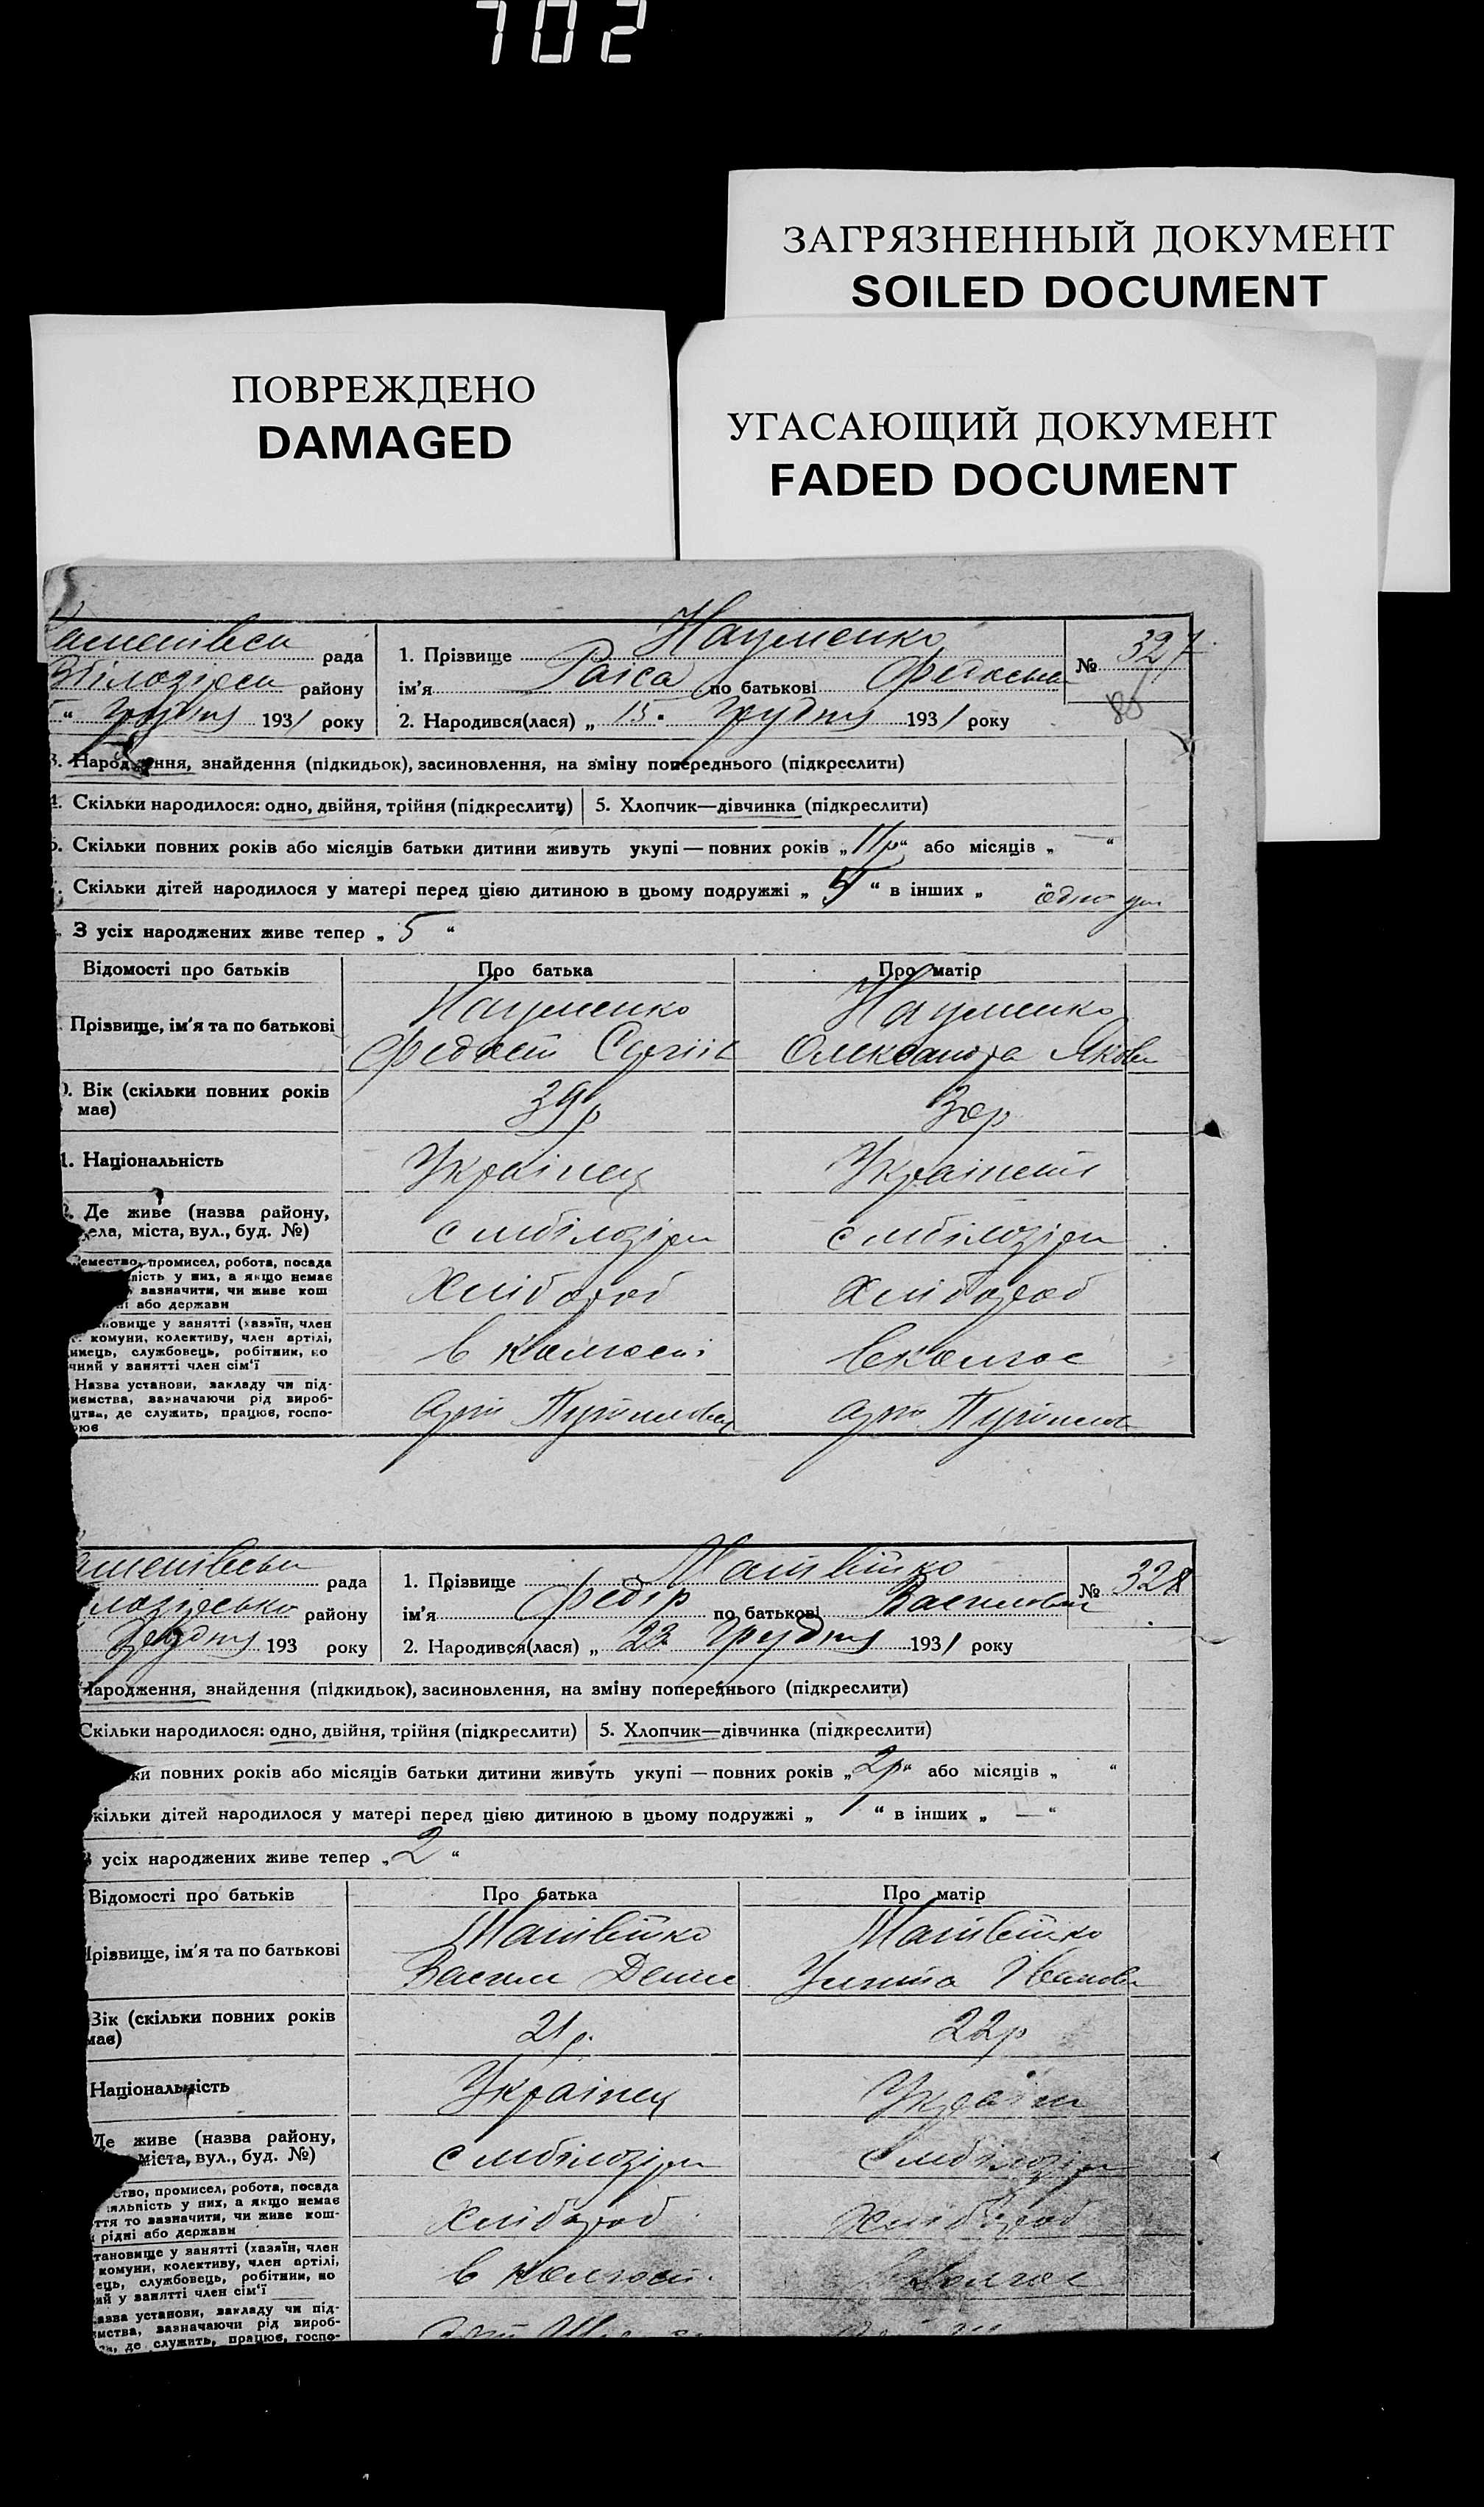 702
ЗАГРЯЗНЕННЫЙ ДОКУМЕНТ
SOILED DOCUMENT
ПОВРЕЖДЕНО
DAMAGED
УГАСАЮЩИЙ ДОКУМЕНТ
FADED DOCUMENT
рада
1. Прізвище Науменко
№ 327
району
ім'я Раіса по батькові
“ грудня 1931 року
2. Народився(лася) „ 15. грудня 1931 року
3. Народження, знайдення (підкидьок), засиновлення, на зміну попереднього (підкреслити)
4. Скільки народилося: одно, двійня, трійня (підкреслити)
5. Хлопчик—дівчинка (підкреслити)
Скільки повних років або місяців батьки дитини живуть укупі — повних років „ 11р “ або місяців „ — “
Скільки дітей народилося у матері перед цією дитиною в цьому подружжі „ “ в інших „
З усіх народжених живе тепер „ 5 “
Відомості про батьків
Про батька
Про матір
Прізвище, ім'я та по батькові
Науменко
Науменко
Олександра
. Вік (скільки повних років
має)
39р
30р
1. Національність
Українец
Де живе (назва району,
ела, міста, вул., буд. №)
с мбілозірка
с мбілозірка
емество, промисел, робота, посада
ність у них, а якщо немає
зазначити, чи живе кош
і або держави
Хлібороб
Хлібороб
новище у занятті (хазяїн, член
комуни, колективу, член артілі,
инець, службовець, робітник, по
чний у занятті член сім'ї
в колгоспі
Назва установи, закладу чи під-
иємства, зазначаючи рід вироб-
цтва, де служить, працює, госпо-
рює
рада
1. Прізвище Матвійко
№ 328
району
ім'я Федір по батькові
грудня 193 року
2. Народився(лася) „ 23. грудня 1931 року
Народження, знайдення (підкидьок), засиновлення, на зміну попереднього (підкреслити)
Скільки народилося: одно, двійня, трійня (підкреслити)
5. Хлопчик—дівчинка (підкреслити)
ки повних років або місяців батьки дитини живуть укупі — повних років „ 2р “ або місяців „ “
кільки дітей народилося у матері перед цією дитиною в цьому подружжі „ 1 “ в інших „ — “
усіх народжених живе тепер „ 2 “
Відомості про батьків
Про батька
Про матір
Прізвище, ім'я та по батькові
Матвійко
Матвійко
Вік (скільки повних років
має)
21р.
22р
Національність
Українец
Де живе (назва району,
міста, вул., буд. №)
с мбілозірка
с мбілозірка
ство, промисел, робота, посада
яльність у них, а якщо немає
ття то зазначити, чи живе кош-
рідні або держави
Хлібороб
Хлібороб
тановище у занятті (хазяїн, член
комуни, колективу, член артілі,
ець, службовець, робітник, по
ий у занятті член сім'ї
в колгосп.
азва установи, закладу чи під-
мства, зазначаючи рід вироб-
де служить, працює, госпо-